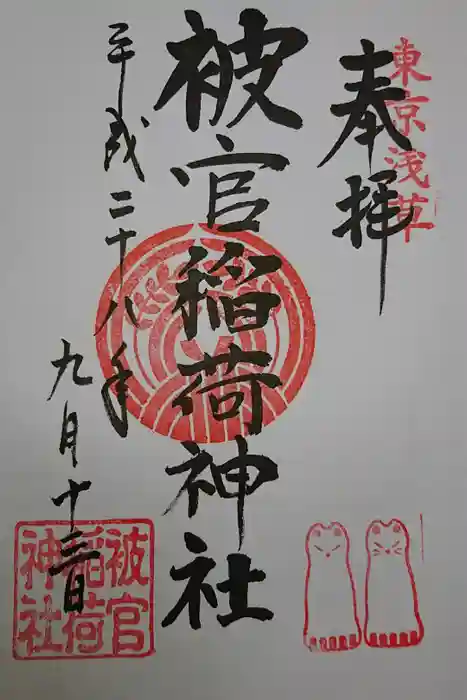 東京浅草
奉拝
被官稲荷神社
平成二十八年
九月十三日
被官
稲荷
神社